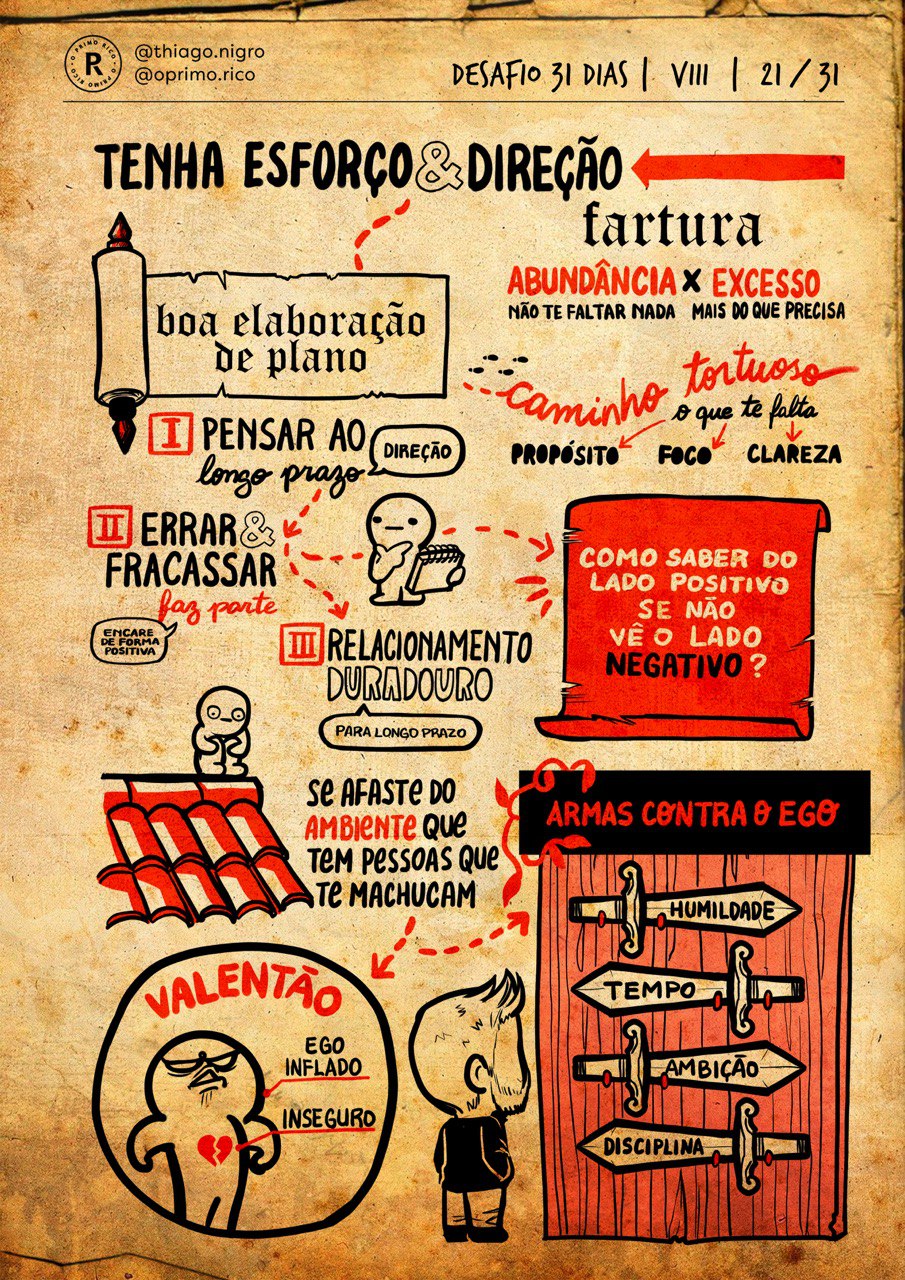 O PRIMO RICO • O PRIMO RICO •
R
@thiago.nigro
@oprimo.rico
DESAFIO 31 DIAS | VIII | 21 / 31
TENHA ESFORÇO & DIREÇÃO
fartura
ABUNDÂNCIA X EXCESSO
NÃO TE FALTAR NADA MAIS DO QUE PRECISA
boa elaboração
de plano
caminho tortuoso
o que te falta
PROPÓSITO FOCO CLAREZA
I PENSAR AO
longo prazo
DIREÇÃO
II ERRAR &
FRACASSAR
faz parte
ENCARE
DE FORMA
POSITIVA
III RELACIONAMENTO
DURADOURO
PARA LONGO PRAZO
COMO SABER DO
LADO POSITIVO
SE NÃO
VÊ O LADO
NEGATIVO ?
SE AFASTE DO
AMBIENTE QUE
TEM PESSOAS QUE
TE MACHUCAM
ARMAS CONTRA O EGO
HUMILDADE
TEMPO
AMBIÇÃO
DISCIPLINA
VALENTÃO
EGO
INFLADO
INSEGURO